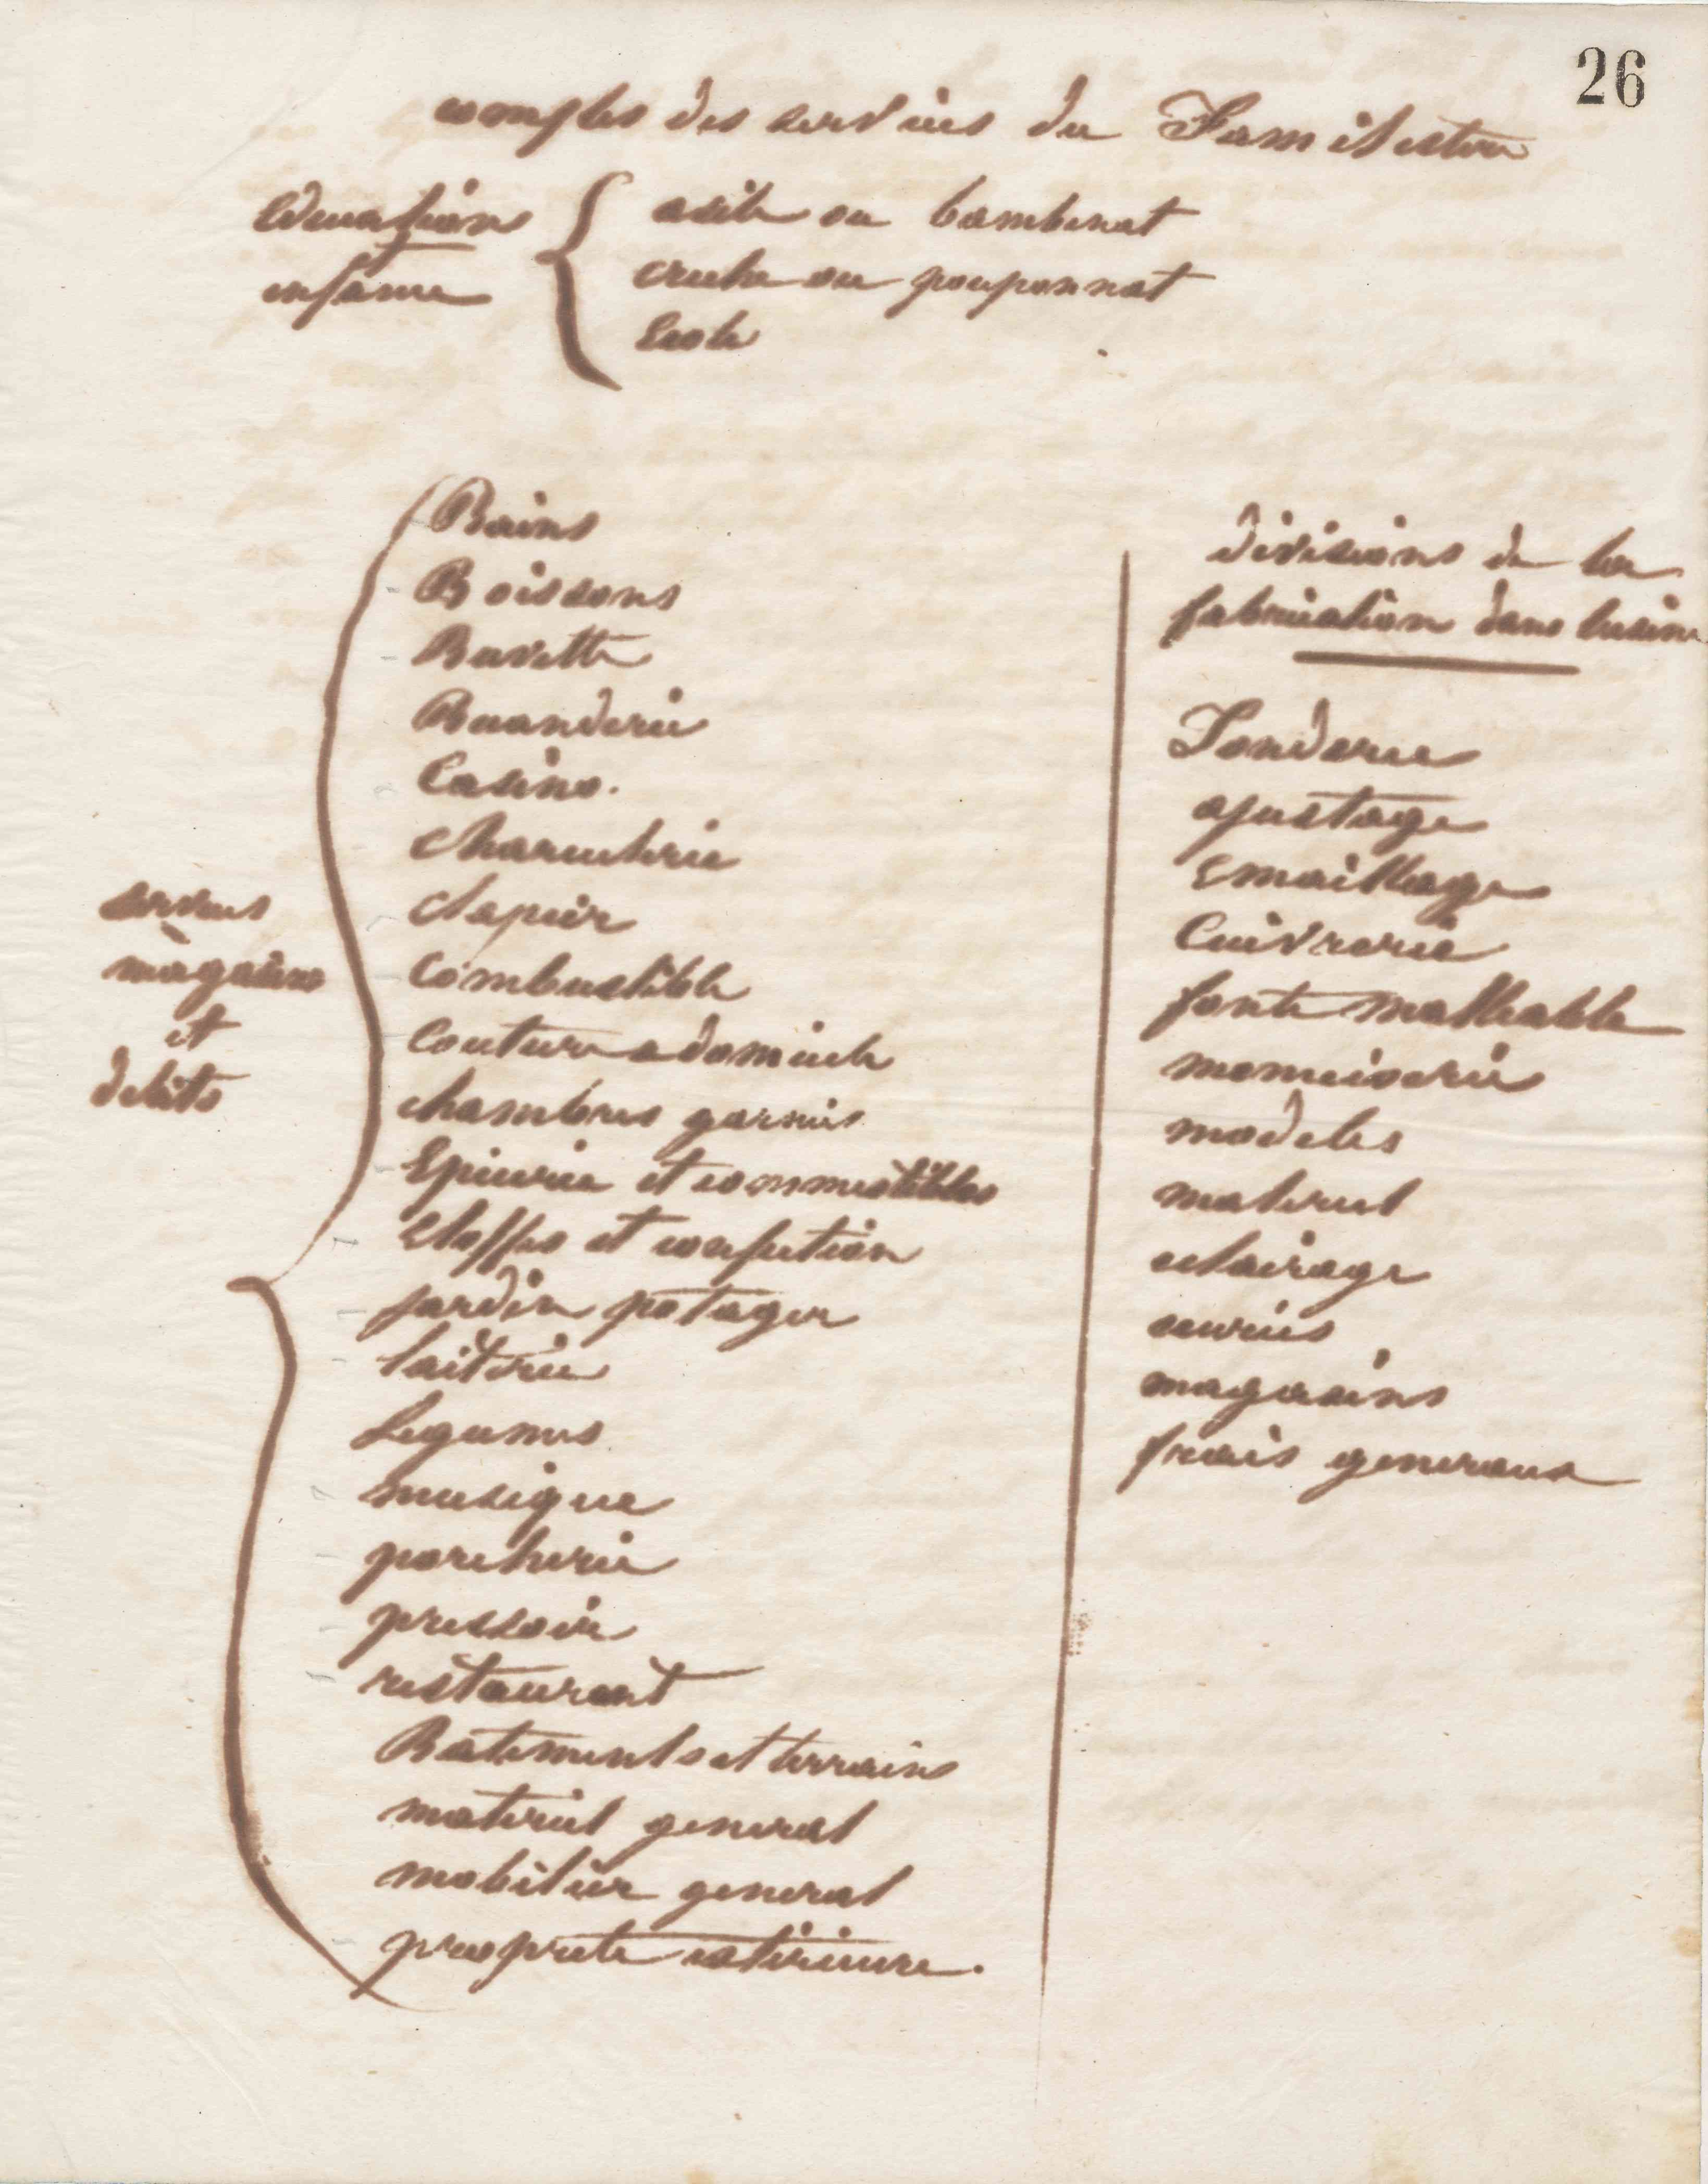 26
comptes des services du Familistere
education
enfance
asile ou bambinat
creche ou pouponnat
Ecole
Bains
Boissons
Buvette
Buanderie
Casino.
charcuterie
clapier
Combustible
Couture a domicile
chambres garnies
Epicerie et commestibles
Etoffes et confection
jardin potager
laiterie
Legumes
musique
porcherie
pressoir
restaurant
Batiments et terrains
materiel general
mobilier general
proprete exterieure.
services
magasins
et
debits
divisions de la
fabrication dans lusine
Fonderie
ajustage
Emaillage
Cuivrerie
fonte malleable
menuiserie
modeles
materiel
eclairage
ecuries
magasins
frais generaux